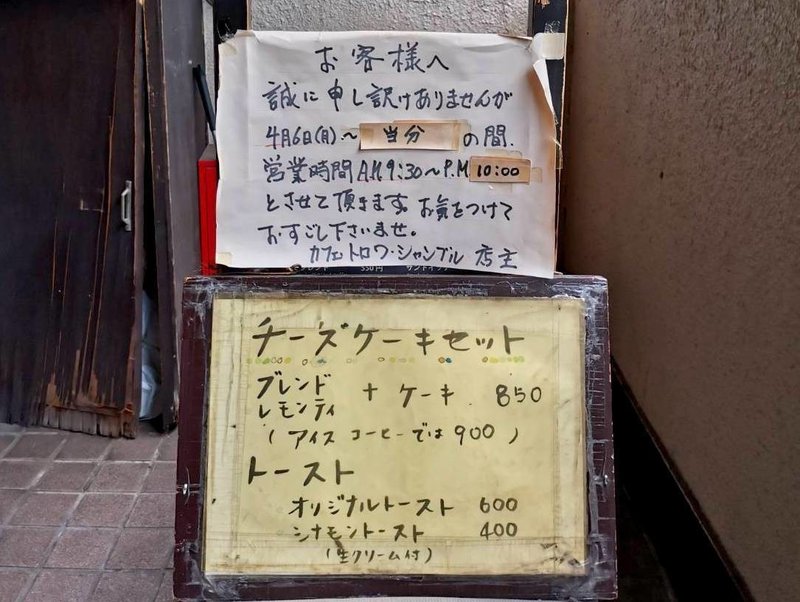 お客様へ
誠に申し訳けありませんが
4月6日(月)～ 当分 の間、
営業時間 A.M 9:30～P.M 10:00
とさせて頂きます。お気をつけて
おすごし下さいませ。
カフェ トロワ・シャンブル 店主
350円 サンドイッチ
チーズケーキセット
ブレンド
レモンティ + ケーキ 850
(アイスコーヒーでは900)
トースト
オリジナルトースト 600
シナモントースト 400
(生クリーム付)